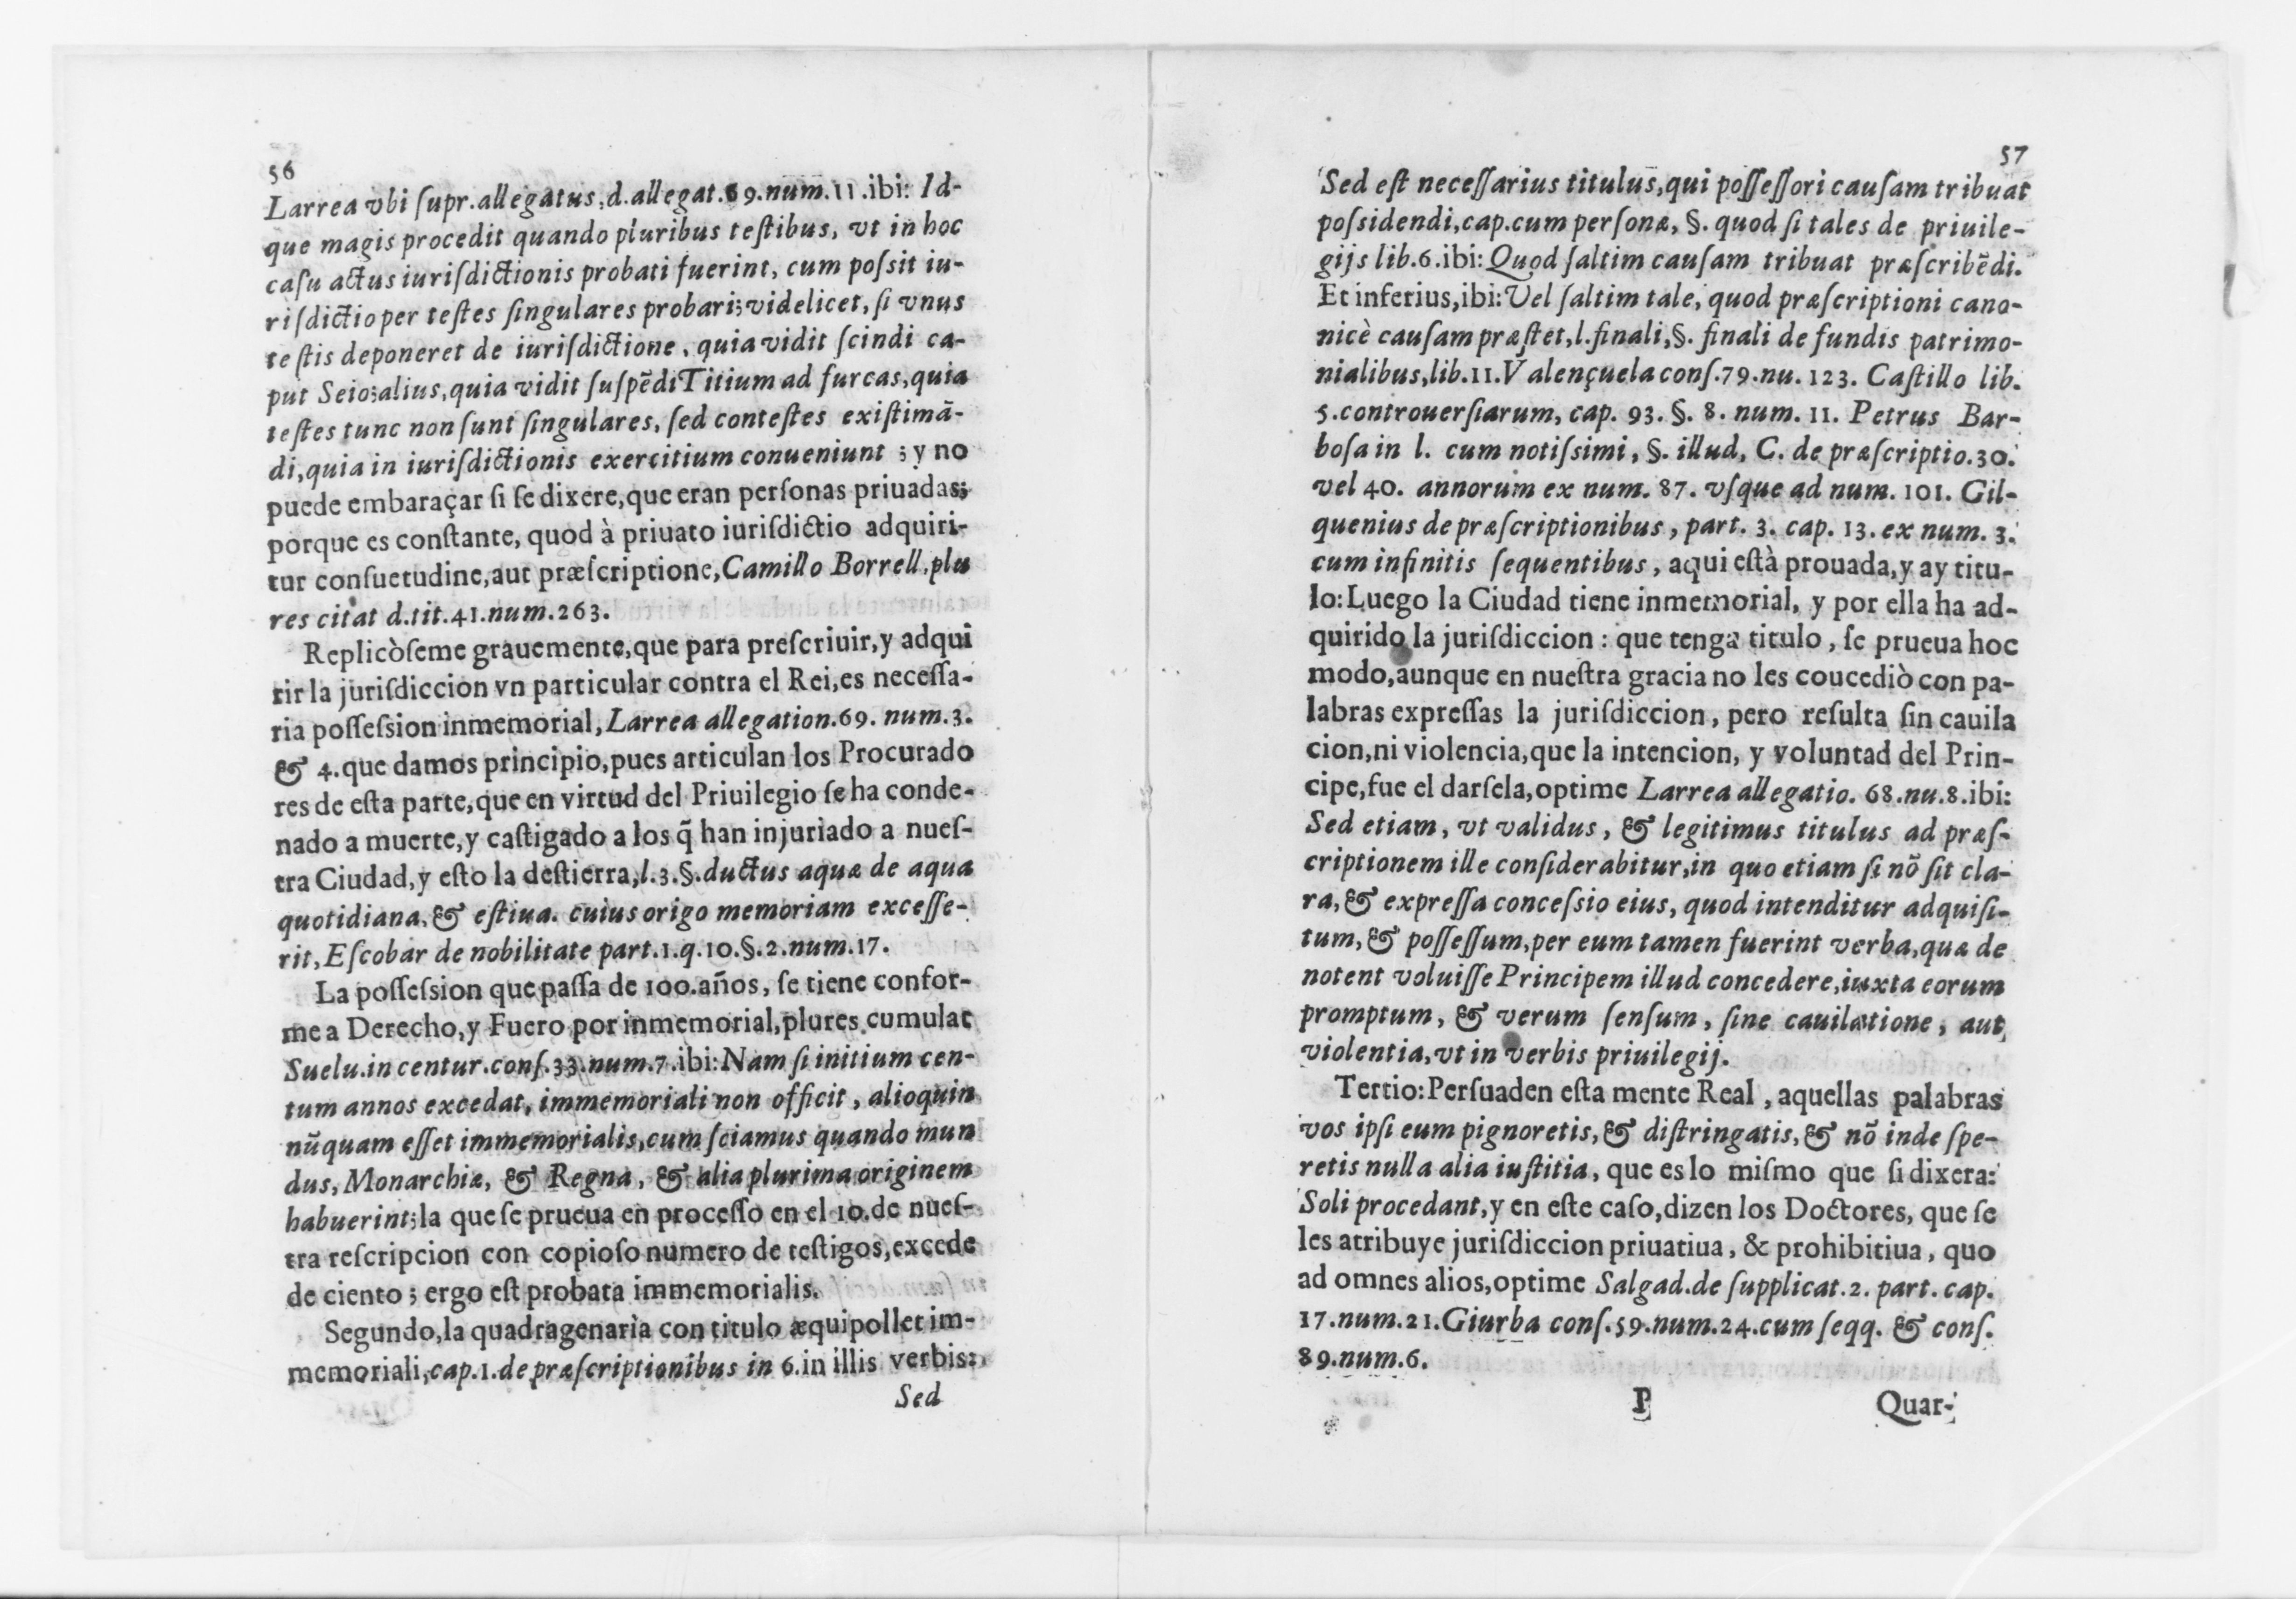 56
Larrea vbi ſupr.allegatus,d.allegat.69.num.11.ibi: Id-
que magis procedit quando pluribus teſtibus, vt in hoc
caſu actus iuriſdictionis probati fuerint, cum poſsit iu-
riſdictio per teſtes ſingulares probari;videlicet, ſi vnus
teſtis deponeret de iuriſdictione, quia vidit ſcindi ca-
put Seio;alius,quia vidit ſuſpẽdi Titium ad furcas,quia
teſtes tunc non ſunt ſingulares, ſed conteſtes exiſtimã-
di,quia in iuriſdictionis exercitium conueniunt ; y no
puede embaraçar ſi ſe dixere,que eran perſonas priuadas;
porque es conſtante, quod à priuato iuriſdictio adquiri-
tur conſuetudine,aut præſcriptione,Camillo Borrell.plu
res citat d.tit.41.num.263.
Replicòſeme grauemente,que para preſcriuir,y adqui
rir la juriſdiccion vn particular contra el Rei,es neceſſa-
ria poſſeſsion inmemorial, Larrea allegation.69. num.3.
& 4.que damos principio,pues articulan los Procurado
res de eſta parte,que en virtud del Priuilegio ſe ha conde-
nado a muerte,y caſtigado a los q̃ han injuriado a nueſ-
tra Ciudad,y eſto la deſtierra,l.3.§.ductus aquæ de aqua
quotidiana,& eſtiua. cuius origo memoriam exceſſe-
rit, Eſcobar de nobilitate part.1.q.10.§.2.num.17.
La poſſeſsion que paſſa de 100.años, ſe tiene confor-
me a Derecho,y Fuero por inmemorial,plures cumulat
Suelu.in centur.conſ.33.num.7.ibi:Nam ſi initium cen-
tum annos excedat, immemoriali non officit, alioquin
nũquam eſſet immemorialis,cum ſciamus quando mun
dus, Monarchiæ, & Regna, & alia plurima originem
habuerint;la que ſe prueua en proceſſo en el 10.de nueſ-
tra reſcripcion con copioſo numero de teſtigos,excede
de ciento ; ergo eſt probata immemorialis.
Segundo,la quadragenaria con titulo æquipollet im-
memoriali,cap.1.de præſcriptionibus in 6.in illis verbis:
Sed
57
Sed eſt neceſſarius titulus,qui poſſeſſori cauſam tribuat
poſsidendi,cap.cum perſonæ, §. quod ſi tales de priuile-
gijs lib.6.ibi: Quod ſaltim cauſam tribuat præſcribẽdi.
Et inferius,ibi:Vel ſaltim tale, quod præſcriptioni cano-
nicè cauſam præſtet,l.finali,§. finali de fundis patrimo-
nialibus,lib.11.Valençuela conſ.79.nu. 123. Caſtillo lib.
5.controuerſiarum, cap. 93. §. 8. num. 11. Petrus Bar-
boſa in l. cum notiſsimi, §. illud, C. de præſcriptio.30.
vel 40. annorum ex num. 87. vſque ad num. 101. Gil-
quenius de præſcriptionibus, part. 3. cap. 13. ex num. 3.
cum infinitis ſequentibus, aqui eſtà prouada,y ay titu-
lo:Luego la Ciudad tiene inmemorial, y por ella ha ad-
quirido la juriſdiccion : que tenga titulo, ſe prueua hoc
modo,aunque en nueſtra gracia no les coucediò con pa-
labras expreſſas la juriſdiccion, pero reſulta ſin cauila
cion,ni violencia,que la intencion, y voluntad del Prin-
cipe,fue el darſela,optime Larrea allegatio. 68.nu.8.ibi:
Sed etiam, vt validus, & legitimus titulus ad præſ-
criptionem ille conſiderabitur,in quo etiam ſi nõ ſit cla-
ra,& expreſſa conceſsio eius, quod intenditur adquiſi-
tum,& poſſeſſum,per eum tamen fuerint verba,quæ de
notent voluiſſe Principem illud concedere,iuxta eorum
promptum, & verum ſenſum, ſine cauilatione, aut
violentia,vt in verbis priuilegij.
Tertio:Perſuaden eſta mente Real, aquellas palabras
vos ipſi eum pignoretis, & diſtringatis,& nõ inde ſpe-
retis nulla alia iuſtitia, que es lo miſmo que ſi dixera:
Soli procedant,y en eſte caſo,dizen los Doctores, que ſe
les atribuye juriſdiccion priuatiua, & prohibitiua, quo
ad omnes alios,optime Salgad.de ſupplicat.2. part. cap.
17.num.21.Giurba conſ.59.num.24.cum ſeqq. & conſ.
89.num.6.
P
Quar-